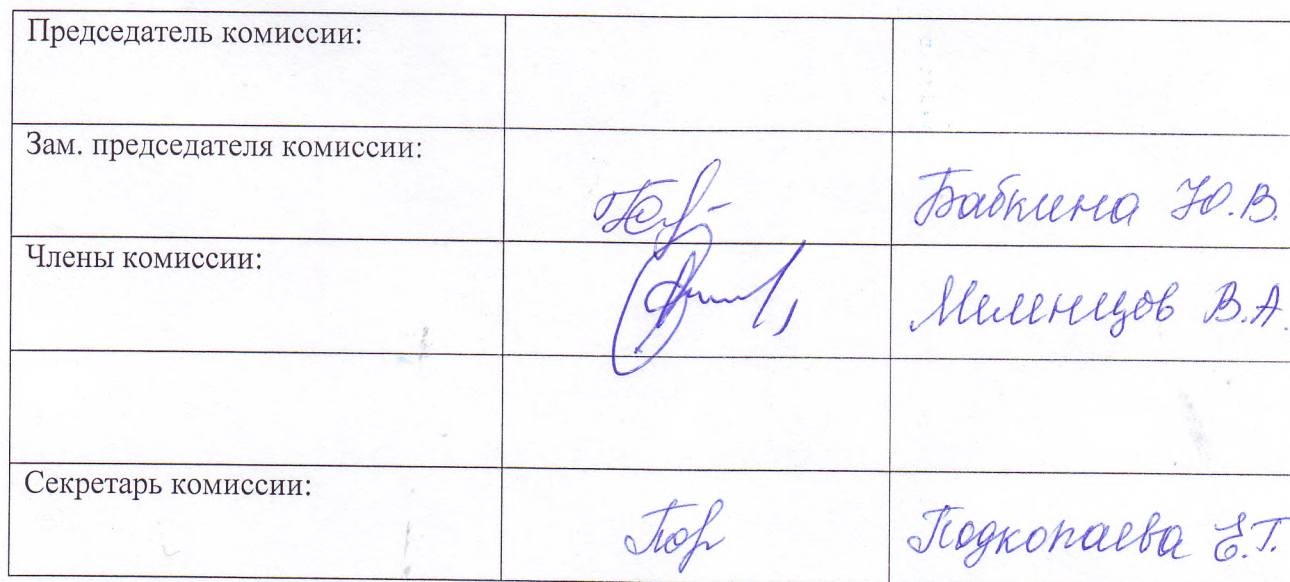 Председатель комиссии:
Зам. председателя комиссии:
Бабкина Ю.В.
Члены комиссии:
Меленцов В.А.
Секретарь комиссии:
Подкопаева Е.Г.